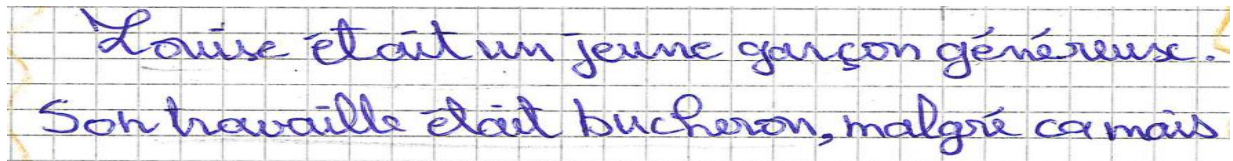 Louise était un jeune garçon généreuse.
Son travaille était bucheron, malgré ca mais